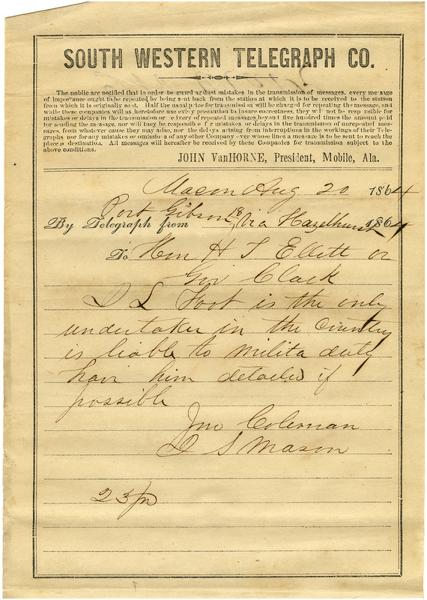 SOUTH WESTERN TELEGRAPH CO.
The public are notified that in order to guard against mistakes in the transmission of messages, every message
of importance ought to be repeated by being sent back from the station at which it is to be received to the station
from which it is originally sent. Half the usual price for transmission will be charged for repeating the message, and
while these companies will as heretofore use every precaution to insure correctness, they will not be responsible for
mistakes or delays in the transmission or delivery of repeated messages beyond five hundred times the amount paid
for sending the message, nor will they be responsible for mistakes or delays in the transmission of unrepeated messages,
from whatever cause they may arise, nor for delays arising from interruptions in the workings of their Telegraphs
nor for any mistakes or omissions of any other Company over whose lines a message is to be sent to reach the
place of destination. All messages will hereafter be received by these Companies for transmission subject to the
above conditions.
JOHN VanHORNE, President, Mobile, Ala.
Macon Aug 20 1864
By Telegraph from Port Gibson 18 Via Hazelhurst 1864
To Hon H T Ellett or
Gov Clark
D L Fort is the only
undertaker in the Country
is liable to milita duty
have him detailed if
possible
Jno Coleman
D S Mason
23/pn